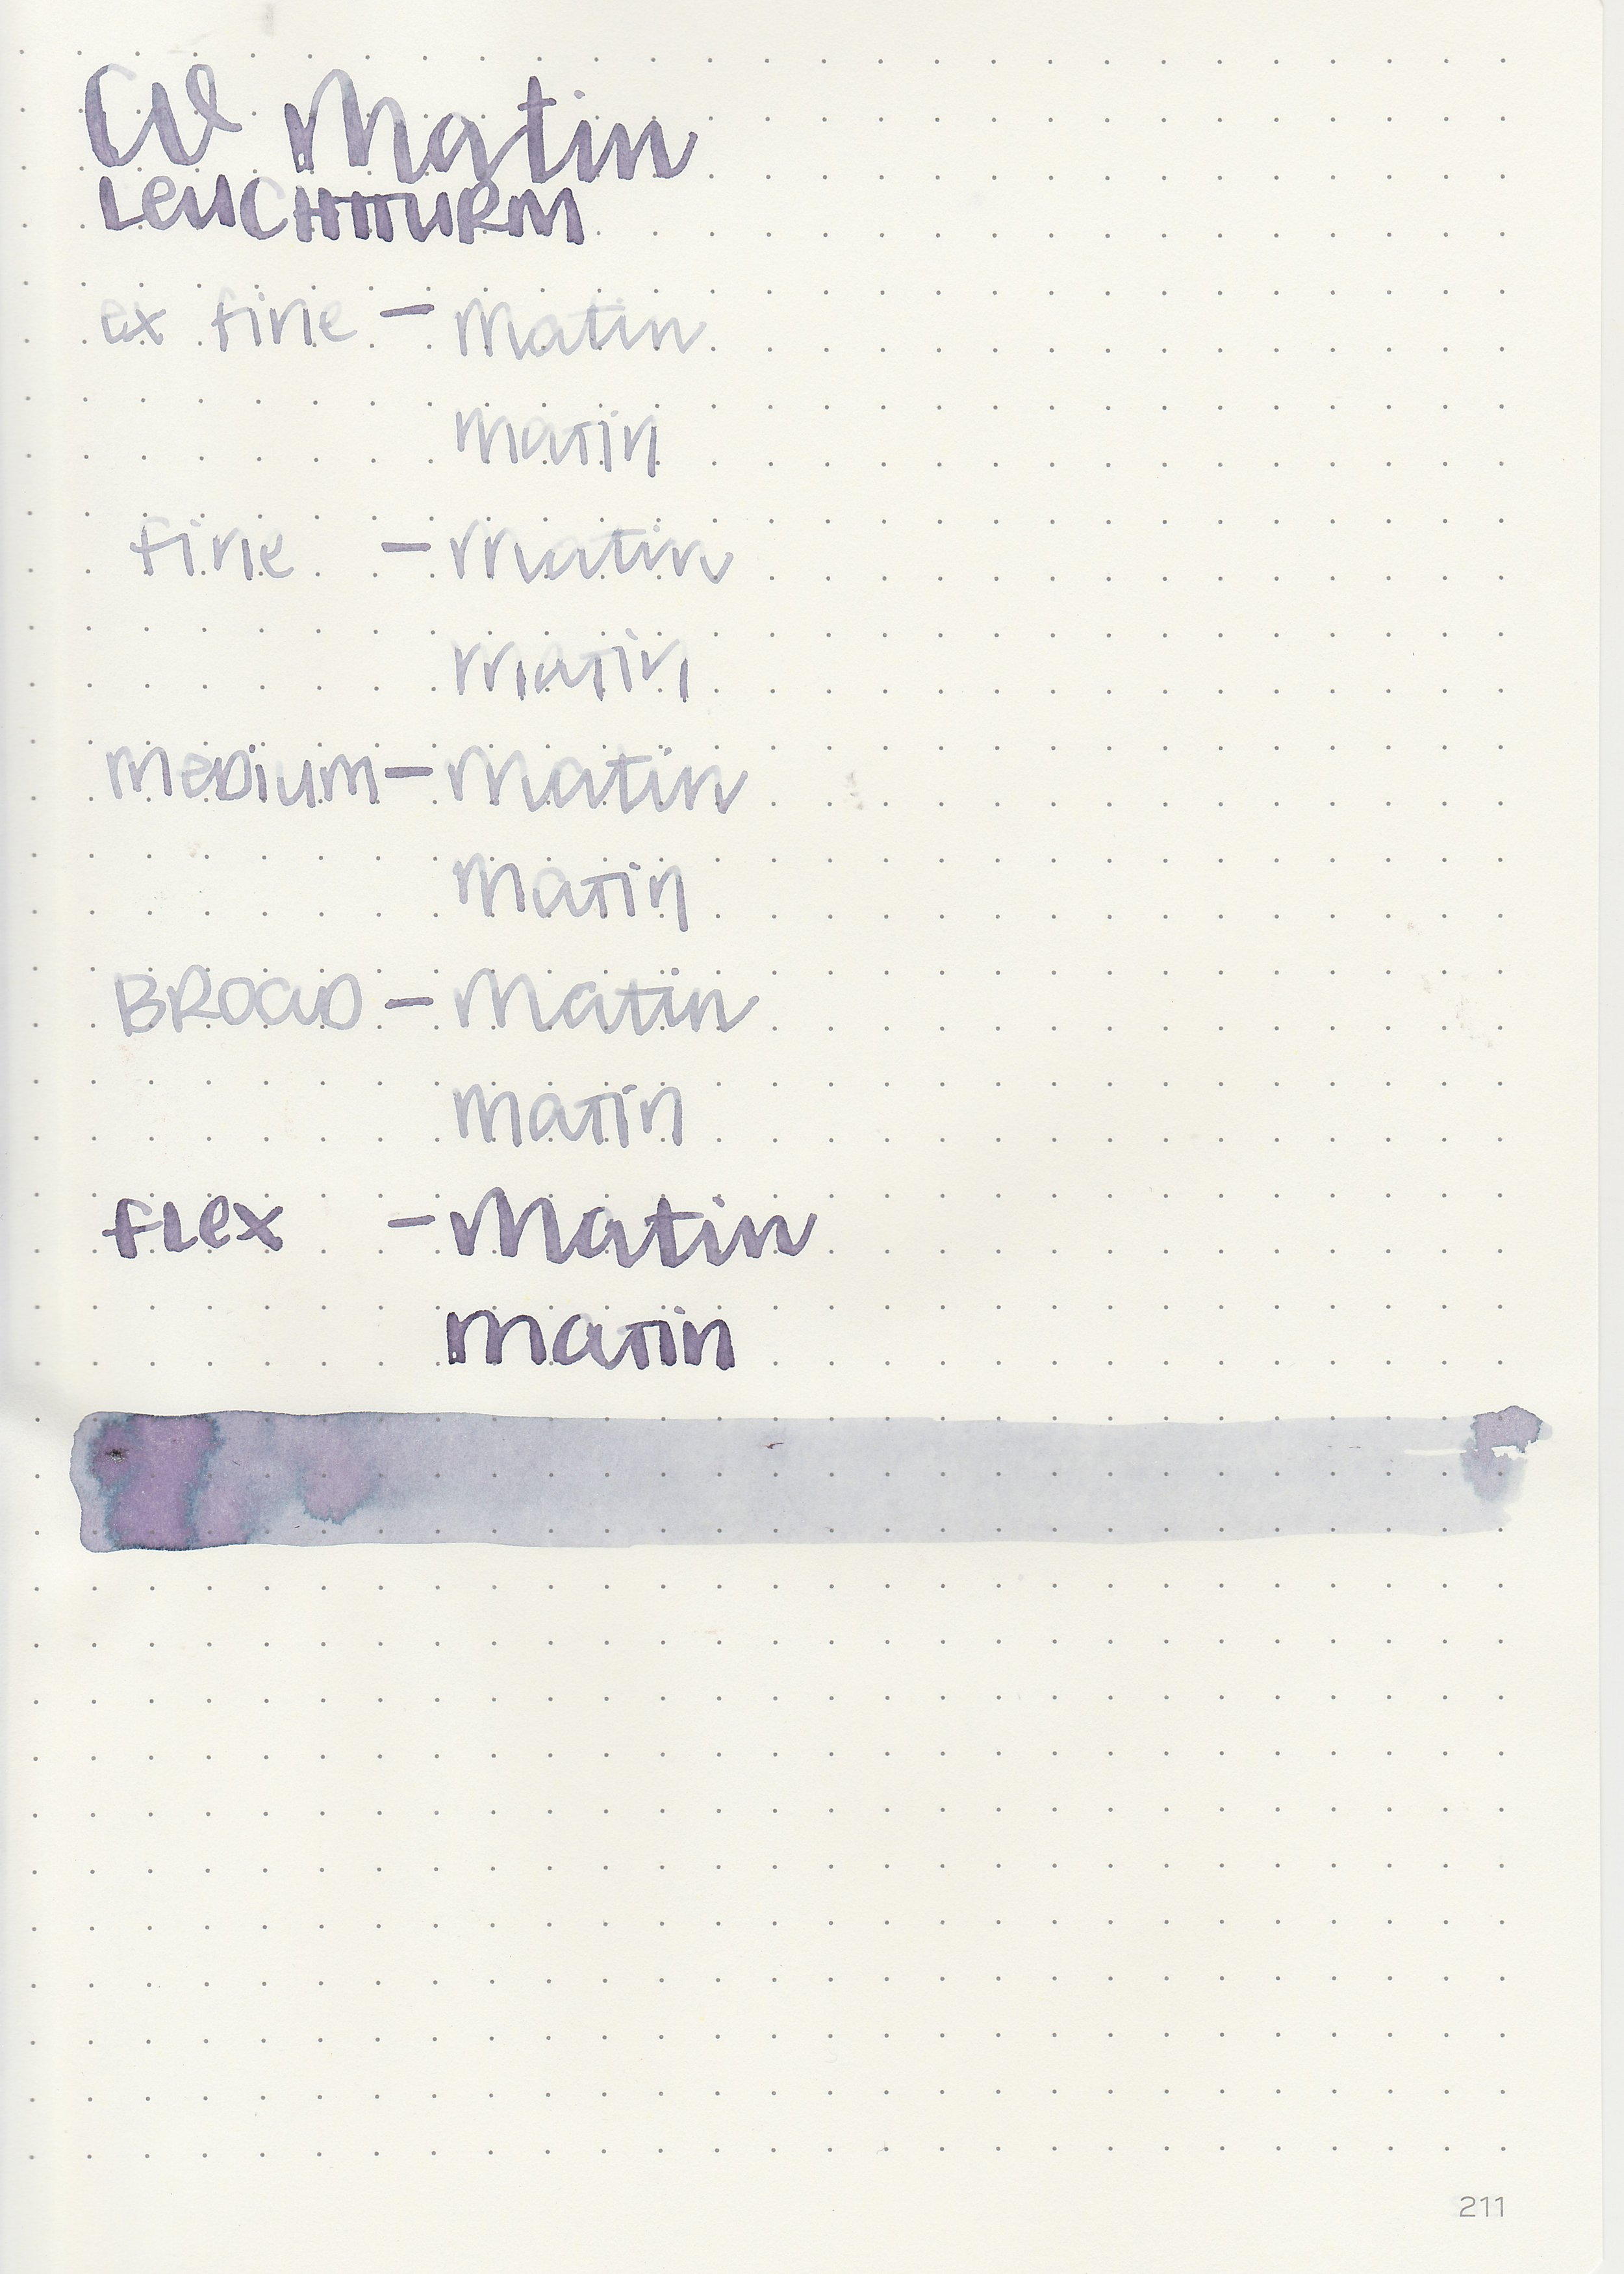 CV Matin
LEUCHTTURM
ex fine - Matin
matin
fine - Matin
matin
MEDIUM - Matin
matin
BROAD - Matin
matin
FLEX - Matin
matin
211